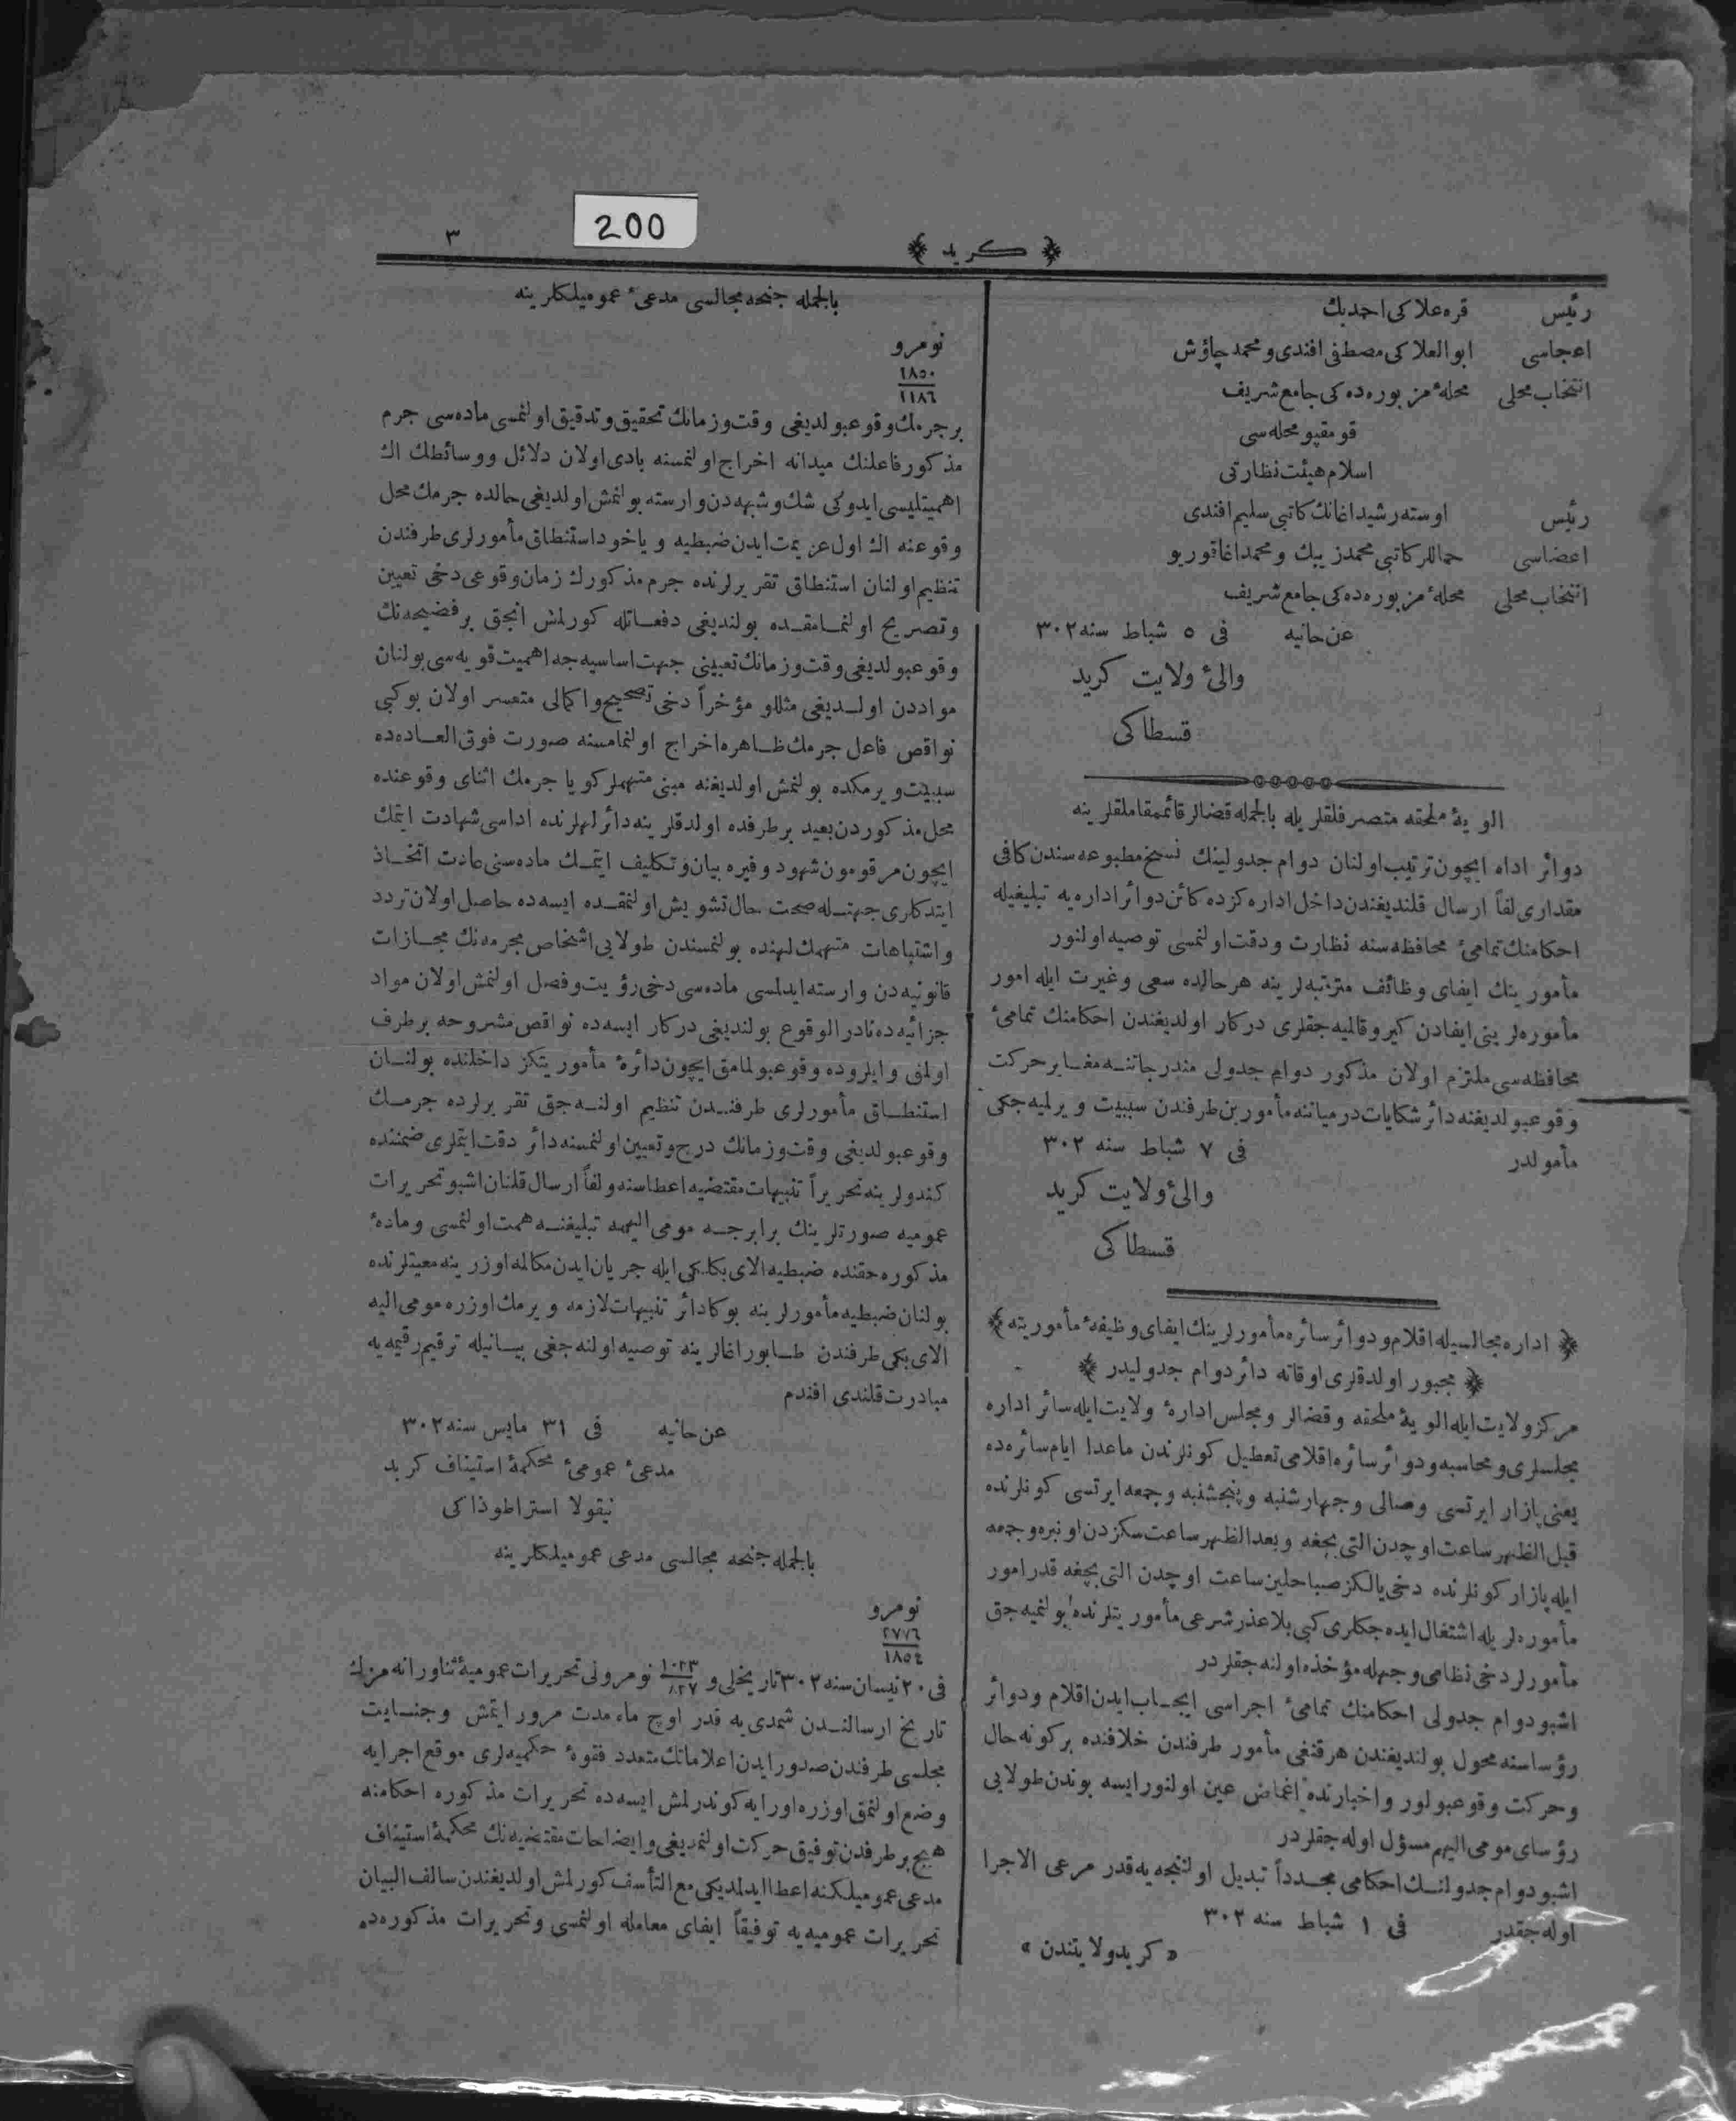 200
﴿ كريد ﴾
٣
رئيس قره علاكى احمد بك
اعجاسى ابو العلاكى مصطفى افندى و محمد چاؤش
انتخاب محلى محلهٔ مزبوره ده كى جامع شريف
قومقپو محله سى
اسلام هيئت نظارتى
رئيس اوسته رشيد اغانك كاتبى سليم افندى
اعضاسى حماللر كاتبى محمد زيبك و محمد اغا قوريو
انتخاب محلى محلهٔ مزبوره ده كى جامع شريف
عن حانيه فى ٥ شباط سنه ٣٠٢
والئ ولايت كريد
قسطاكى
الويهٔ ملحقه متصرفلقلريله بالجمله قضالر قائممقاملقلرينه
دوائر اداه ايچون ترتيب اولنان دوام جدولينك نسخ مطبوعه سندن كافى
مقدارى لفاً ارسال قلنديغندن داخل اداره كزده كائن دوائر اداره يه تبليغيله
احكامنك تمامئ محافظه سنه نظارت و دقت اولنمسى توصيه اولنور
مأمورينك ايفاى وظائف مترتبه لرينه هر حالده سعى و غيرت ايله امور
مأموره لرينى ايفادن كيرو قالميه جقلرى دركار اولديغندن احكامنك تمامئ
محافظه سى ملتزم اولان مذكور دوام جدولى مندرجاتنه مغاير حركت
وقوعبولديغنه دائر شكايات درميانه مأمورين طرفندن سببيت ويرلميه جكى
مأمولدر فى ٧ شباط سنه ٣٠٢
والئ ولايت كريد
قسطاكى
﴿ اداره مجالسيله اقلام و دوائر سائره مأمورلرينك ايفاى وظيفهٔ مأموريته ﴾
﴿ مجبور اولدقلرى اوقاته دائر دوام جدوليدر ﴾
مركز ولايت ايله الويهٔ ملحقه و قضالر و مجلس ادارهٔ ولايت ايله سائر اداره
مجلسلرى و محاسبه و دوائر سائره اقلامى تعطيل كونلرندن ماعدا ايام سائره ده
يعنى پازار ايرتسى و صالى و چهارشنبه و پنجشنبه و جمعه ايرتسى كونلرنده
قبل الظهر ساعت اوچدن التى بچغه و بعد الظهر ساعت سكزدن اونبره و جمعه
ايله پازار كونلرنده دخى يالكز صباحلين ساعت اوچدن التى بچغه قدر امور
مأموره لريله اشتغال ايده جكلرى كبى بلا عذر شرعى مأموريتلرنده بولنميه جق
مأمورلر دخى نظامى وجهله مؤخذه اولنه جقلردر
اشبو دوام جدولى احكامنك تمامئ اجراسى ايجاب ايدن اقلام و دوائر
رؤساسنه محول بولنديغندن هر قنغى مأمور طرفندن خلافنده بر كونه حال
و حركت وقوعبولور و اخبارنده اغماض عين اولنور ايسه بوندن طولايى
رؤساى مومى اليهم مسؤل اوله جقلردر
اشبو دوام جدولنك احكامى مجدداً تبديل اولنجه يه قدر مرعى الاجرا
اوله جقدر فى ١ شباط سنه ٣٠٢
« كريد ولايتندن »
بالجمله جنحه مجالسى مدعئ عموميلكلرينه
نومرو
١٨٥٠
١١٨٦
بر جرمك وقوعبولديغى وقت و زمانك تحقيق و تدقيق اولنمسى ماده سى جرم
مذكور فاعلنك ميدانه اخراج اولنمسنه بادى اولان دلائل و وسائطك اك
اهميتليسى ايدوكى شك و شبهه دن وارسته بولنمش اولديغى حالده جرمك محل
وقوعنه اك اول عزيمت ايدن ضبطيه و ياخود استنطاق مأمورلرى طرفندن
تنظيم اولنان استنطاق تقريرلرنده جرم مذكورك زمان وقوعى دخى تعيين
و تصريح اولنمامقده بولنديغى دفعاتله كورلمش انجق بر فضيحه نك
وقوعبولديغى وقت و زمانك تعيينى جهت اساسيه جه اهميت قويه سى بولنان
مواددن اولديغى مثللو مؤخراً دخى تصحيح و اكمالى متعسر اولان بو كبى
نواقص فاعل جرمك ظاهره اخراج اولنمامسنه صورت فوق العاده ده
سببيت ويرمكده بولنمش اولديغنه مبنى متهملر كويا جرمك اثناى وقوعنده
محل مذكوردن بعيد بر طرفده اولدقلرينه دائر لهلرنده اداسى شهادت ايتمك
ايچون مرقومون شهود وفيره بيان و تكليف ايتمك ماده سنى عادت اتخاذ
ايتدكلرى جهتله صحت حال تشويش اولنمقده ايسه ده حاصل اولان تردد
و اشتباهات متهمك لهنده بولنمسندن طولايى اشخاص مجرمه نك مجازات
قانونيه دن وارسته ايدلمسى ماده سى دخى رؤيت و فصل اولنمش اولان مواد
جزائيه ده نادر الوقوع بولنديغى دركار ايسه ده نواقص مشروحه بر طرف
اولمق و ايلروده وقوعبولمامق ايچون دائرهٔ مأموريتكز داخلنده بولنان
استنطاق مأمورلرى طرفندن تنظيم اولنه جق تقريرلرده جرمك
وقوعبولديغى وقت و زمانك درج و تعيين اولنمسنه دائر دقت ايتملرى ضمننده
كندولرينه تحريراً تنبيهات مقتضيه اعطاسنه و لفاً ارسال قلنان اشبو تحريرات
عموميه صورتلرينك برابرجه مومى اليهمه تبليغنه همت اولنمسى و مادهٔ
مذكوره حقنده ضبطيه الاى بكلكى ايله جريان ايدن مكالمه اوزرينه معيتلرنده
بولنان ضبطيه مأمورلرينه بوكا دائر تنبيهات لازمه ويرمك اوزره مومى اليه
الاى بكى طرفندن طابور اغالرينه توصيه اولنه جغى بيانيله ترقيم رقيمه يه
مبادرت قلندى افندم
عن حانيه فى ٣١ مايس سنه ٣٠٢
مدعئ عمومئ محكمهٔ استيناف كريد
نيقولا استراطوذاكى
بالجمله جنحه مجالسى مدعى عموميلكلرينه
نومرو
٢٧٧٦
١٨٥٤
فى ٢٠ نيسان سنه ٣٠٢ تاريخلى و ١٠٢٣/٨٢٧ نومرولى تحريرات عموميهٔ ثناورانه مزك
تاريخ ارسالندن شمدى يه قدر اوچ ماه مدت مرور ايتمش و جنايت
مجلسى طرفندن صدور ايدن اعلاماتك متعدد فقرهٔ حكميه لرى موقع اجرايه
وضع اولنمق اوزره اورايه كوندرلمش ايسه ده تحريرات مذكوره احكامنه
هيچ بر طرفدن توفيق حركت اولنمديغى و ايضاحات مقتضيه نك محكمهٔ استيناف
مدعى عموميلكنه اعطا ايدلمديكى مع التأسف كورلمش اولديغندن سالف البيان
تحريرات عموميه يه توفيقاً ايفاى معامله اولنمسى و تحريرات مذكوره ده